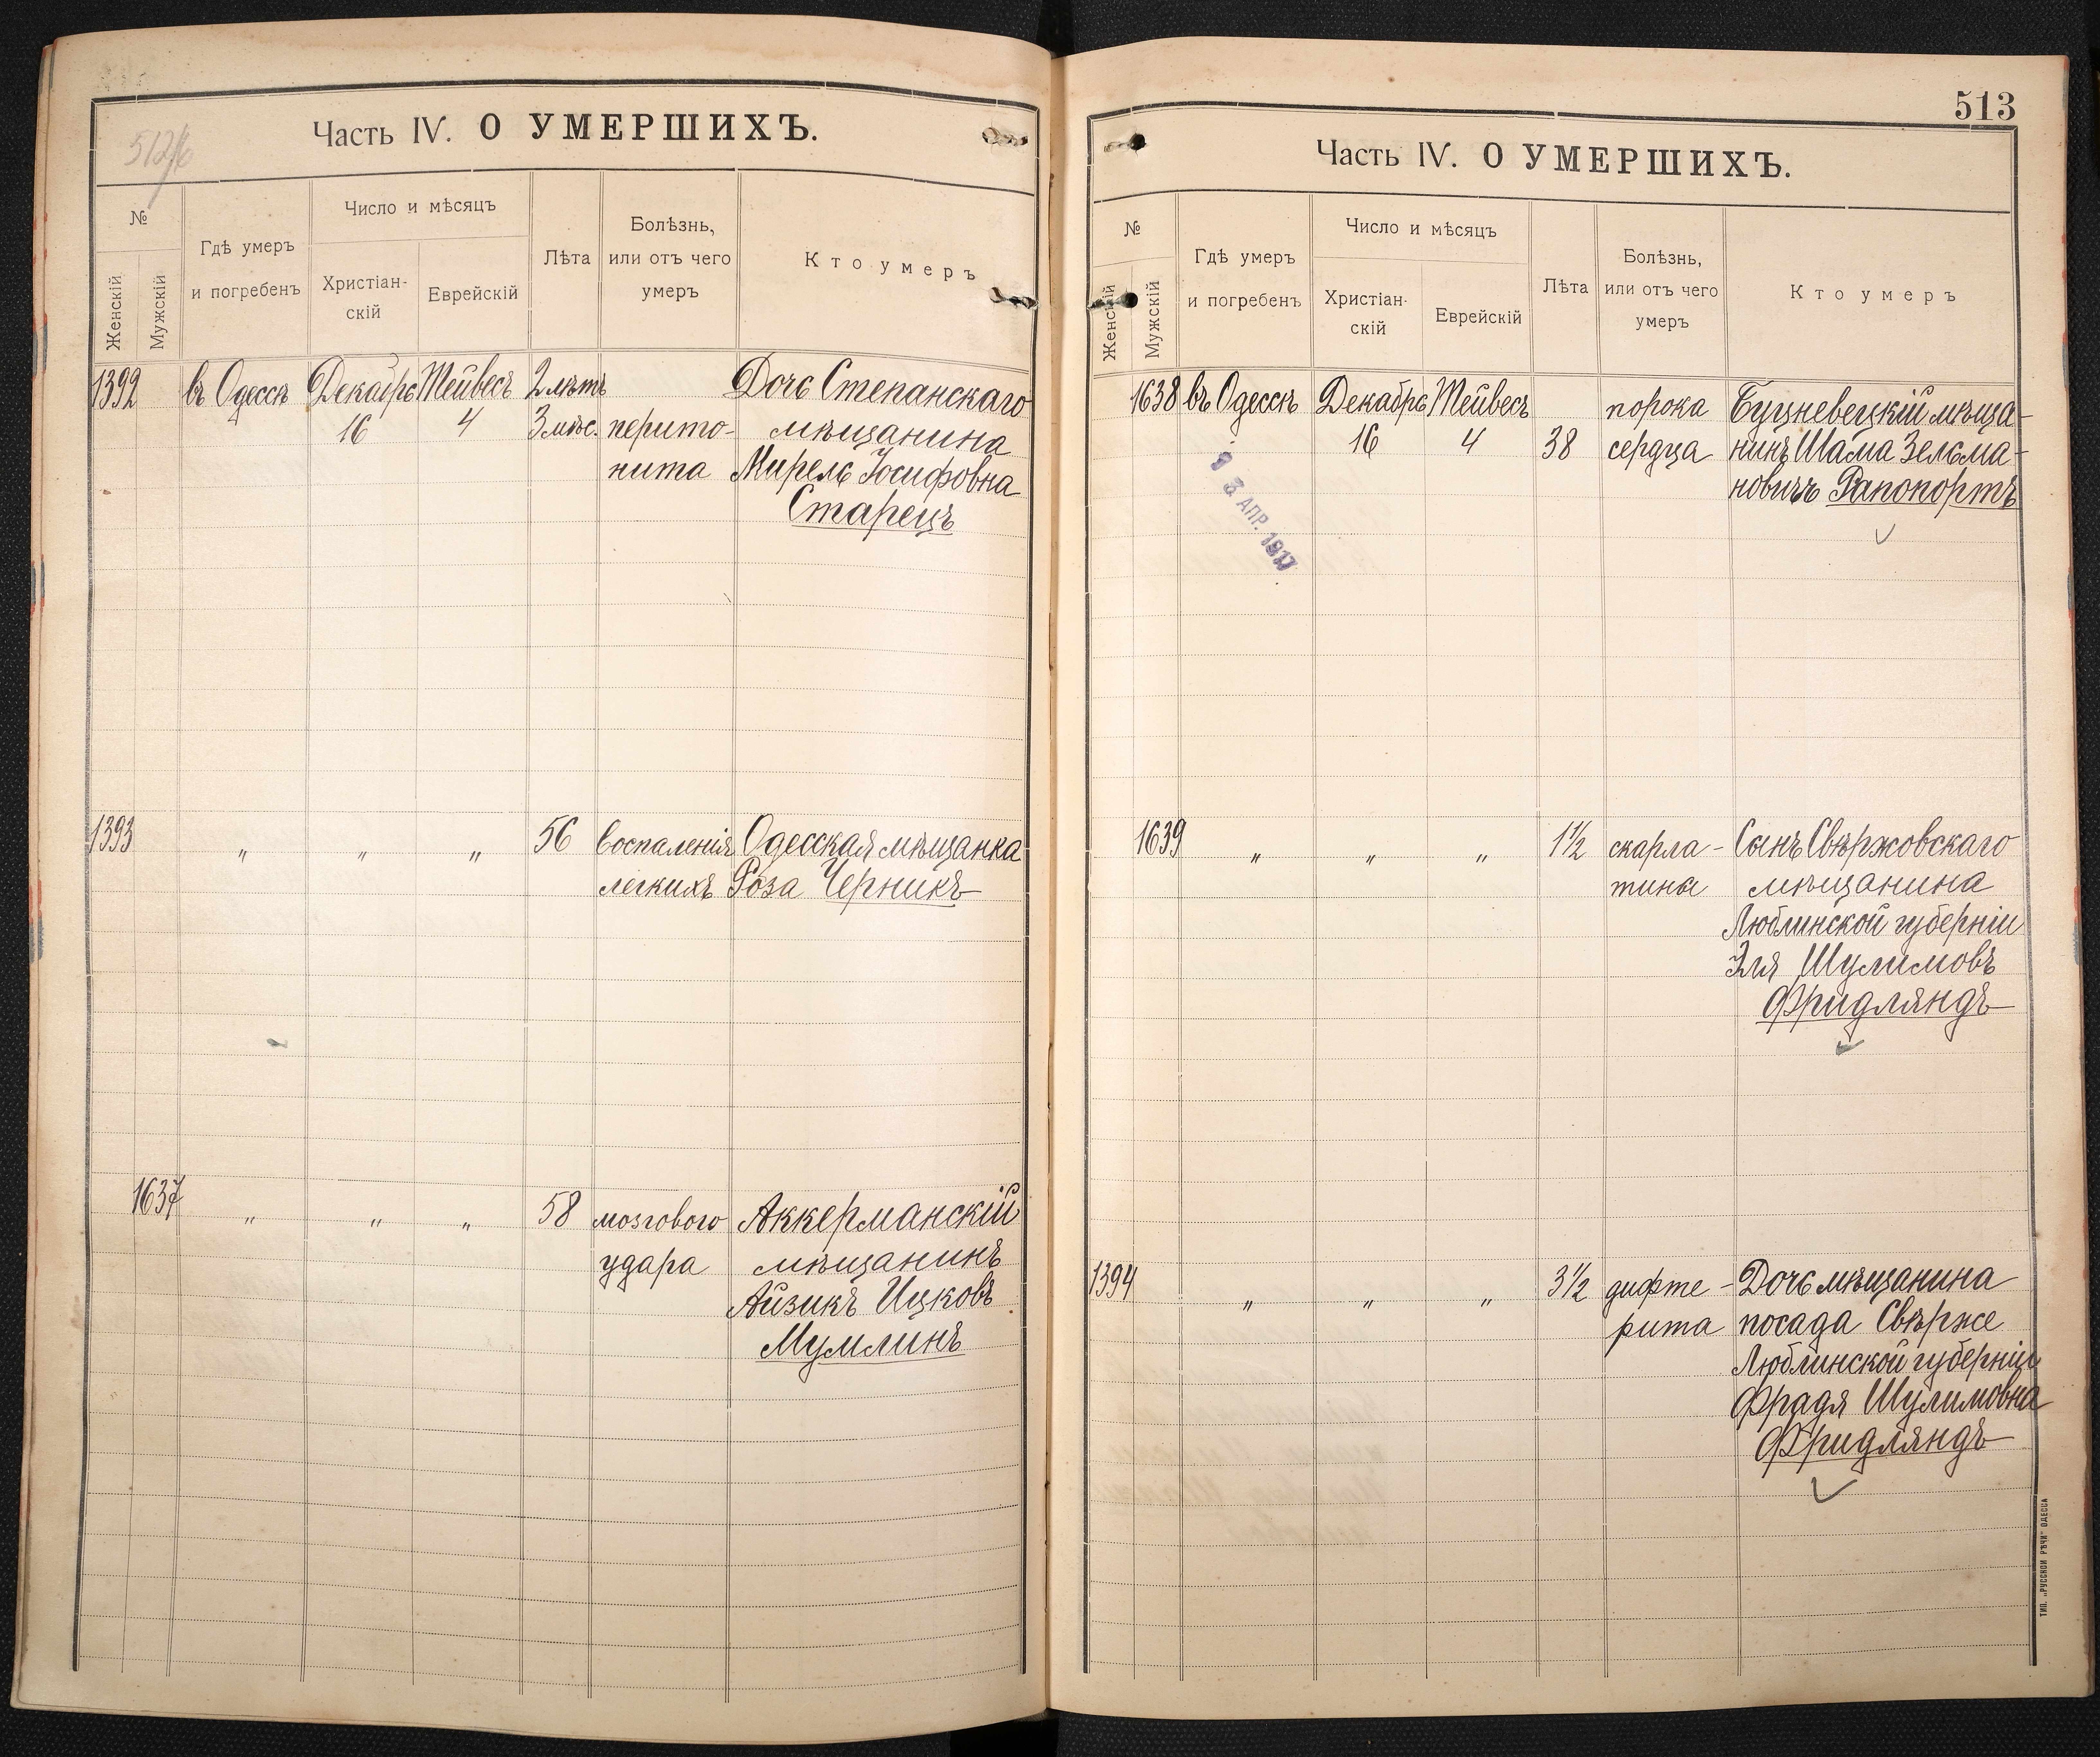 512/б
Часть IV. О УМЕРШИХЪ.
№
Женскій
Мужскій
Гдѣ умеръ
и погребенъ
Число и мѣсяцъ
Христіан-
скій
Еврейскій
Лѣта
Болѣзнь,
или отъ чего
умеръ
Кто умеръ
1392 въ Одессѣ Декабрь Тейвесъ 2 лѣтъ Дочь Степанскаго
16 4 3 мѣс. перито- мѣщанина
нита Мирель Іосифовна
Старецъ
1393 " " " 56 воспаленія Одесская мѣщанка
легкихъ Роза Черникъ
1637 " " " 58 мозгового Аккерманскій
удара мѣщанинъ
Айзикъ Ицковъ
Мумлинъ
513
Часть IV. О УМЕРШИХЪ.
№
Женскій
Мужскій
Гдѣ умеръ
и погребенъ
Число и мѣсяцъ
Христіан-
скій
Еврейскій
Лѣта
Болѣзнь,
или отъ чего
умеръ
Кто умеръ
1638 въ Одессѣ Декабрь Тейвесъ порока Буцневецкій мѣща-
16 4 38 сердца нинъ Шама Зельма-
новичъ Рапопортъ
13 АПР. 1917
1639 " " " 1½ скарла- Сынъ Свѣржовскаго
тины мѣщанина
Люблинской губерніи
Эля Шулимовъ
Фридляндъ
1394 " " " 3½ дифте- Дочь мѣщанина
рита посада Свѣрже
Люблинской губерніи
Фрадя Шулимовна
Фридляндъ
ТИП. „РУССКОЙ РѢЧИ" ОДЕССА